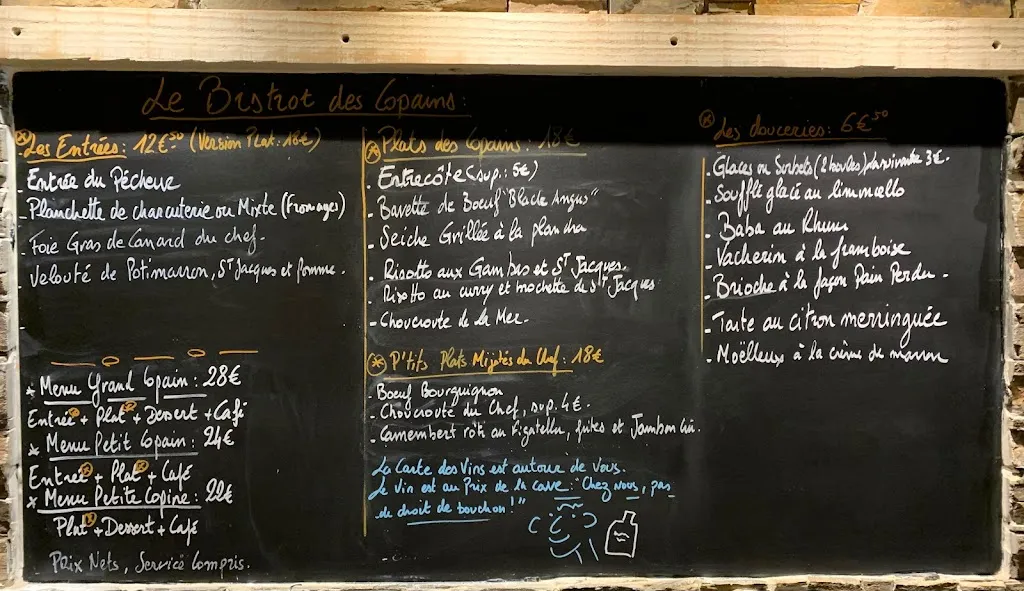 Le Bistrot des Copains:
Les Entrées: 12€50 (Version Plat: 18€)
- Entrée du Pêcheur
- Planchette de charcuterie ou Mixte (Fromages)
- Foie Gras de Canard du chef.
- Velouté de Potimarron, ST Jacques et pomme.
* Menu Grand Copain: 28€
Entrée + Plat + Dessert + Café
* Menu Petit Copain: 24€
Entrée + Plat + Café
* Menu Petite Copine: 22€
Plat + Dessert + Café
Prix Nets, Service Compris.
Plats des Copains: 18€
- Entrecôte (sup.: 5€)
- Bavette de Boeuf "Black Angus"
- Seiche Grillée à la plancha
- Risotto aux Gambas et ST Jacques.
- Risotto au curry et brochette de ST Jacques
- Choucroute de la Mer.
P'tits Plats Mijotés du Chef: 18€
- Boeuf Bourguignon
- Choucroute du Chef, sup. 4€.
- Camembert rôti au Figatellu, frites et Jambon cru.
La Carte des Vins est autour de Vous.
Le Vin est au Prix de la cave: "Chez nous, pas
de droit de bouchon!"
Les douceries: 6€50
- Glaces ou Sorbets (2 boules) 3€.
- Soufflé glacé au limoncello
- Baba au Rhum
- Vacherin à la framboise
- Brioche à la façon Pain Perdu.
- Tarte au citron merringuée
- Moëlleux à la crème de marron